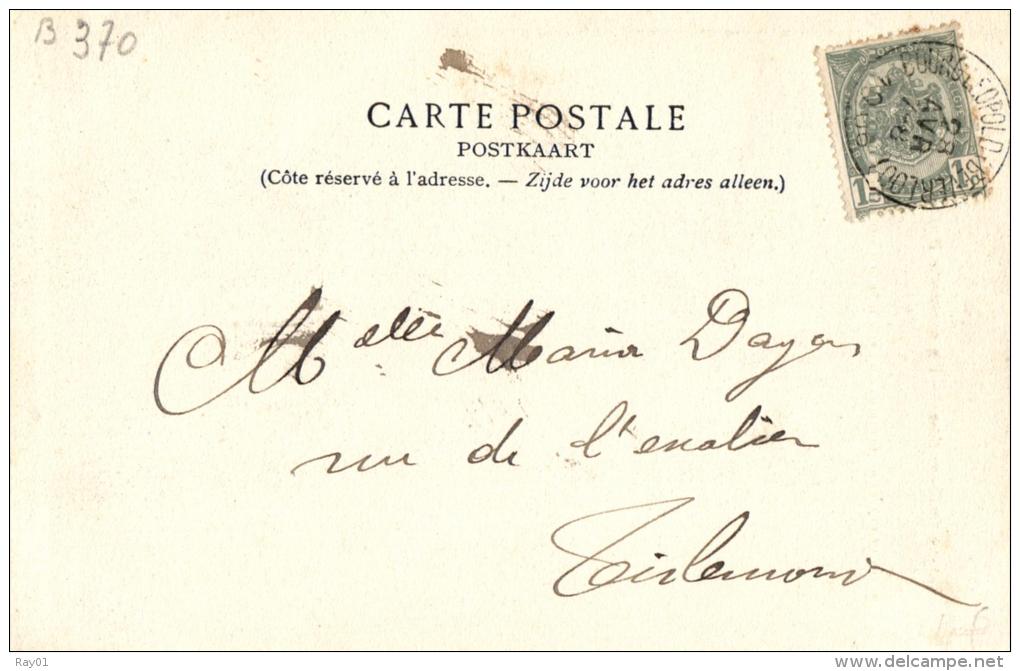 B 370
CARTE POSTALE
POSTKAART
(Côte réservé à l'adresse. — Zijde voor het adres alleen.)
BOURG-LEOPOLD
28
AVR
1
Mlle Maria
rue de
Tirlemont
Ray01
delcampe.net